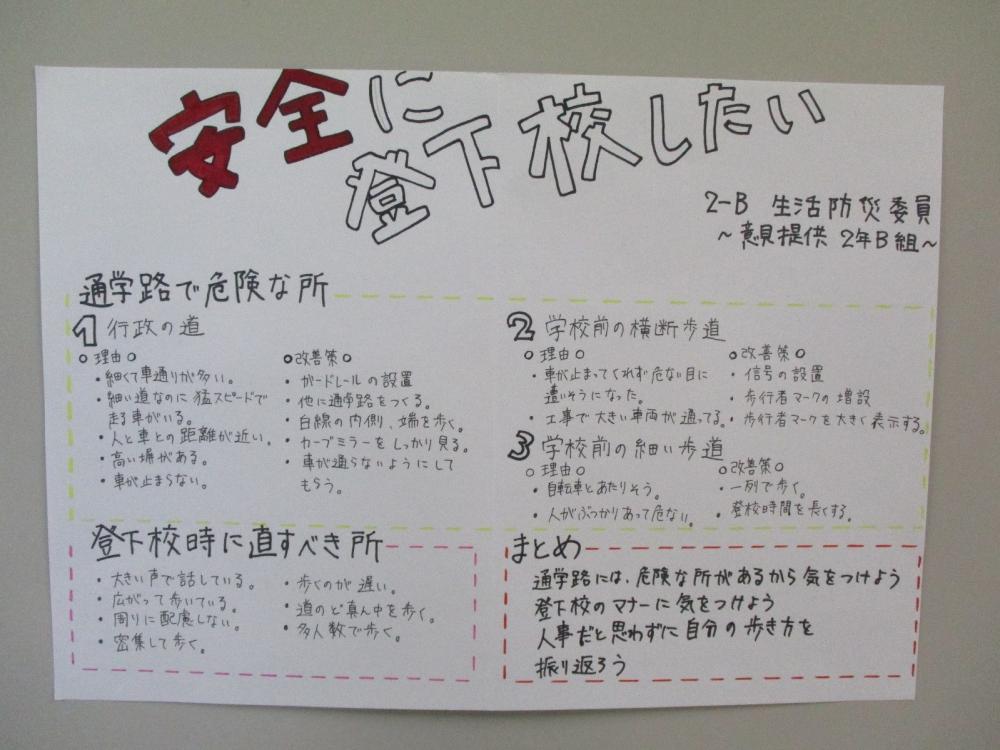 安全に
登下校したい
2-B 生活防災委員
～意見提供 2年B組～
通学路で危険な所
1 行政の道
○理由○
・細くて車通りが多い。
・細い道なのに猛スピードで
走る車がいる。
・人と車との距離が近い。
・高い塀がある。
・車が止まらない。
○改善策○
・ガードレールの設置
・他に通学路をつくる。
・白線の内側、端を歩く。
・カーブミラーをしっかり見る。
・車が通らないようにして
もらう。
2 学校前の横断歩道
○理由○
・車が止まってくれず危ない目に
遭いそうになった。
・工事で大きい車両が通ってる。
○改善策○
・信号の設置
・歩行者マークの増設
・歩行者マークを大きく表示する。
3 学校前の細い歩道
○理由○
・自転車とあたりそう。
・人がぶつかりあって危ない。
○改善策○
・一列で歩く。
・登校時間を長くする。
登下校時に直すべき所
・大きい声で話している。
・広がって歩いている。
・周りに配慮しない。
・密集して歩く。
・歩くのが遅い。
・道のど真ん中を歩く。
・多人数で歩く。
まとめ
通学路には、危険な所があるから気をつけよう
登下校のマナーに気をつけよう
人事だと思わずに自分の歩き方を
振り返ろう